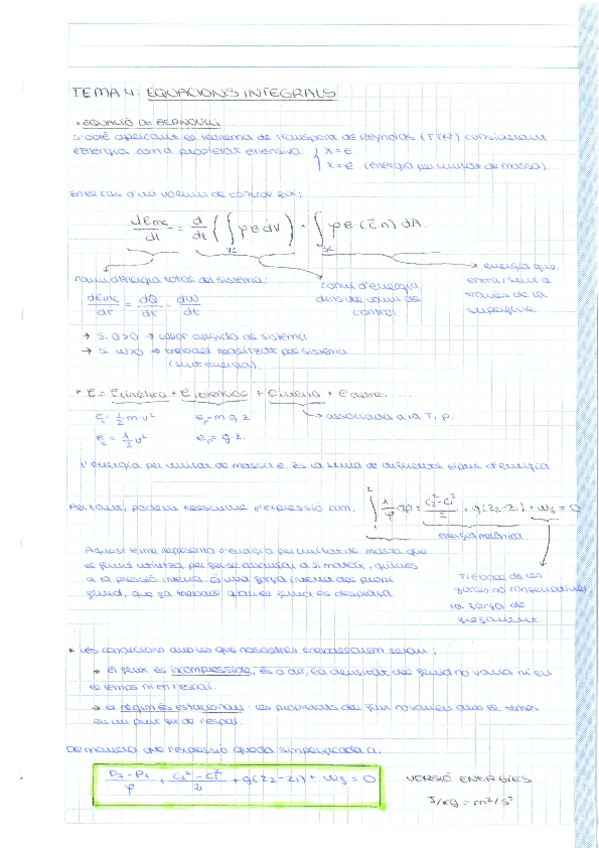 TEMA 4: EQUACIONS INTEGRALS
• EQUACIÓ DE BERNOULLI
S'obté aplicant el teorema de transport de Reynolds (TTR) considerant
l'energia com a propietat extensiva. { X = E
x = e (energia per unitat de massa)
En el cas d'un volum de control fix;
dEmc/dt = d/dt (∫VC ρ e dV) + ∫SC ρ e (c̄ n̄) dA.
Canvi d'energia total del sistema:
canvi d'energia dins del volum de control.
energia que entra/surt a través de la superfície.
dEmc/dt = dQ/dt - dW/dt
→ Si Q>0 → calor afegida al sistema
→ Si W>0 → treball realitzat pel sistema
(surt energia).
* E = Ecinètica + Epotencial + Einterna + Ealtres ....
Ec = 1/2 m·v² Ep = m g z → associada a la T, p.
ec = 1/2 v² ep = g z.
L'energia per unitat de massa e, és la suma de diferents tipus d'energia
Per tant, podem reescriure l'expressió com, ∫₁² 1/ρ dp + (c₂² - c₁²)/2 + g(z₂-z₁) + wf = 0
energia mecànica
Aquest terme representa l'energia per unitat de massa que
el fluid utilitza per
a la pressió interna. És una força interna del propi
fluid, que fa treball quan el fluid es desplaça
Treball de les
forces no conservatives
la força de
fregament
* Les condicions amb les que nosaltres treballarem seran;
→ El flux és incompressible, és a dir, la densitat del fluid no varia ni en
el temps ni en l'espai.
→ el règim és estacionari: les propietats del flux no varien amb el temps
en un punt fix de l'espai.
De manera que l'expressió queda simplificada a,
(P₂ - P₁)/ρ + (c₂² - c₁²)/2 + g(z₂-z₁) + wf = 0
VERSIÓ ENERGIES
J/kg = m²/s²